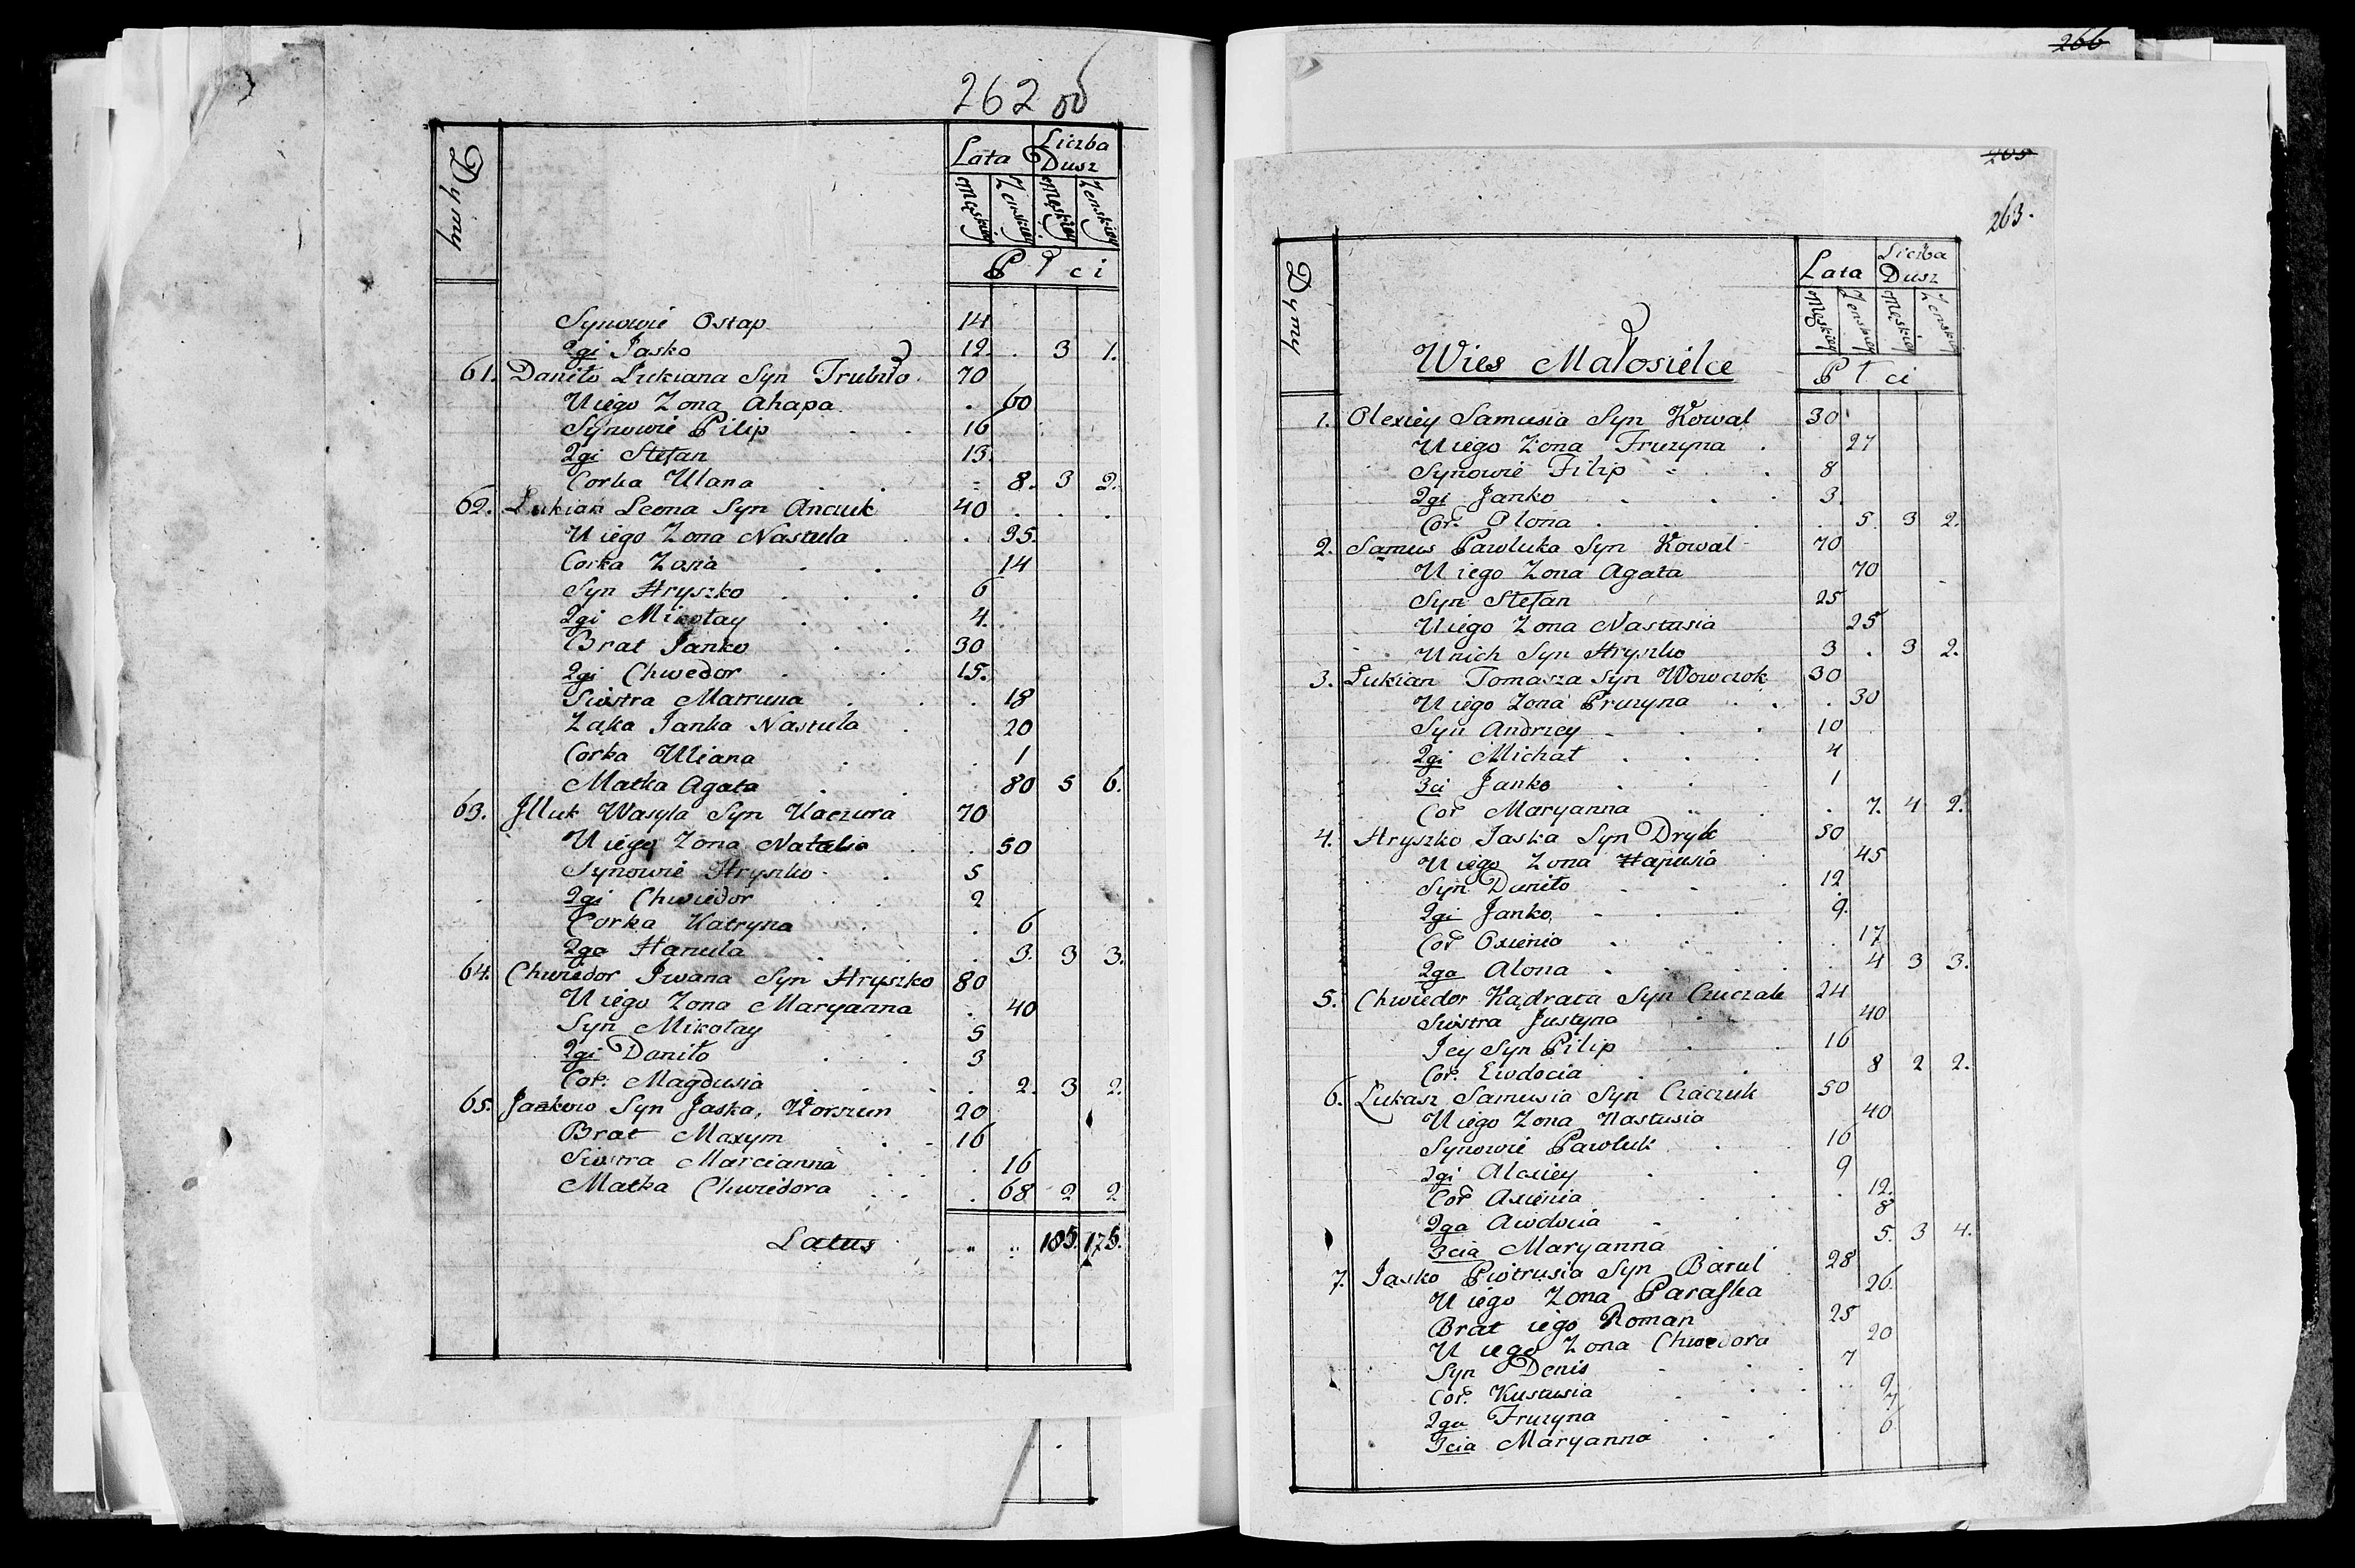 262 об
Dymy
Lata Liczba Dusz
Męskiey Zenskiey Męskiey Zenskiey
Płci
Synowie Ostap 14
2gi Jasko 12. . 3 1.
61. Daniło Łukiana Syn 70
U iego Zona Ahapa . 60
Synowie Pilip 16
2gi Stefan 13.
Corka Ulana 8. 3 2.
62. Łukian Leona Syn Anczuk 40 . . .
U iego Zona Nastula . 35.
Corka Zosia 14
Syn Hryszko 6
2gi Mikołay 4.
Brat Janko 30
2gi Chwedor 15.
Siostra Matruna . 18
Zaka Janka Nastula 20
Corka Uliana . 1
Matka Agata . 80 5 6.
63. Jlluk Wasyla Syn Kaczura 70
U iego Zona Natalia . 50
Synowie Hryszko 5
2gi Chwiedor 2
Corka Katryna . 6
2ga Hanula . 3. 3 3.
64. Chwiedor Jwana Syn Hryszko 80
U iego Zona Maryanna . 40
Syn Mikołay 5
2gi Daniło 3
Cor: Magdusia . 2. 3 2.
65. Jankow Syn Jaska, Worszun 20
Brat Maxym 16
Siostra Marcianna . 16
Matka Chwiedora . 68 2 2
Latus " " 185. 175.
266
265
263.
Dymy
Lata Liczba Dusz
Męskiey Zenskiey Męskiey Zenskiey
Płci
Wies Małosielce
1. Olexiey Samusia Syn Kowal 30
U iego Zona Fruzyna . 27
Synowie Filip 8
2gi Janko 3.
Cor. Olona . 5. 3 2.
2. Samus Pawluka Syn Kowal 70
U iego Zona Agata 70
Syn Stefan 25
U iego Zona Nastasia 25
Unich Syn Hryszko 3 . 3 2.
3. Łukian Tomasza Syn Wowczok 30
U iego Zona Pruzyna . 30
Syn Andrzey 10
2gi Michał 4
3ci Janko 1
Cor Maryanna . 7. 4 2.
4. Hryszko Jaska Syn Dryk 50
U iego Zona Hapusia 45
Syn Daniło 12
2gi Janko 9.
Cor Oxienia . 17
2ga Alona . 4 3 3.
5. Chwiedor Kądrata Syn Czuczak 24
Siostra Justyna 40
Jey Syn Pilip 16
Cor. Ewdocia 8 2 2.
6. Łukasz Samusia Syn Czaczuk 50
U iego Zona Nastusia 40
Synowie Pawluk 16
2gi Alexiey 9
Cor Axienia . 12.
2ga Awdocia 8
3cia Maryanna 5. 3 4.
7. Jasko Piotrusia Syn Barul 28
U iego Zona Parafka 26.
Brat iego Roman 25
U iego Zona Chwedora 20
Syn Denis 7
Cor. Kustusia 9
2ga Fruzyna 7
3cia Maryanna . 6